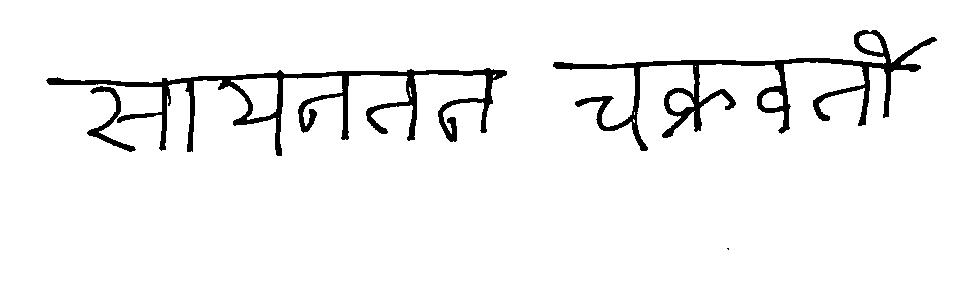 सायनतन चक्रवर्ती